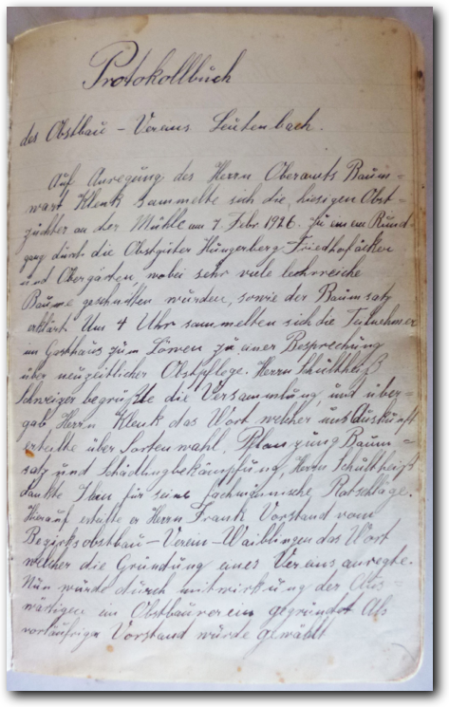 Protokollbuch
des Obstbau - Vereins Leutenbach.
Auf Anregung des Herrn Oberamts Baum-
wart Klenk sammelte sich die hiesigen Obst-
züchter an der Mühle am 7. Febr. 1926. Zu einem Rund-
gang durch die Obstgüter Hungerberg-Friedhofäcker
und Obergärten, wobei sehr viele lehrreiche
Bäume geschnitten wurden, sowie der Baumsatz
erklärt. Um 4 Uhr sammelten sich die Teilnehmer
im Gasthaus zum Löwen zu einer Besprechung
über neuzeitlicher Obstpflege. Herrn Schultheiß
Schneiger begrüßte die Versammlung, und über-
gab Herrn Klenk das Wort welcher uns Auskunft
erteilte über Sortenwahl, Planzung Baum-
satz und Schädlingbekämpfung, Herrn Schultheiß
dankte Ihm für seine fachmännische Ratschläge.
Hierauf erteilte er Herrn Frank Vorstand vom
Bezirksobstbau-Verein-Waiblingen das Wort
welcher die Gründung eines Vereins anregte.
Nun wurde durch mitwirkung der Aus-
wärtigen ein Obstbauverein gegründet Als
vorläufigen Vorstand wurde gewählt